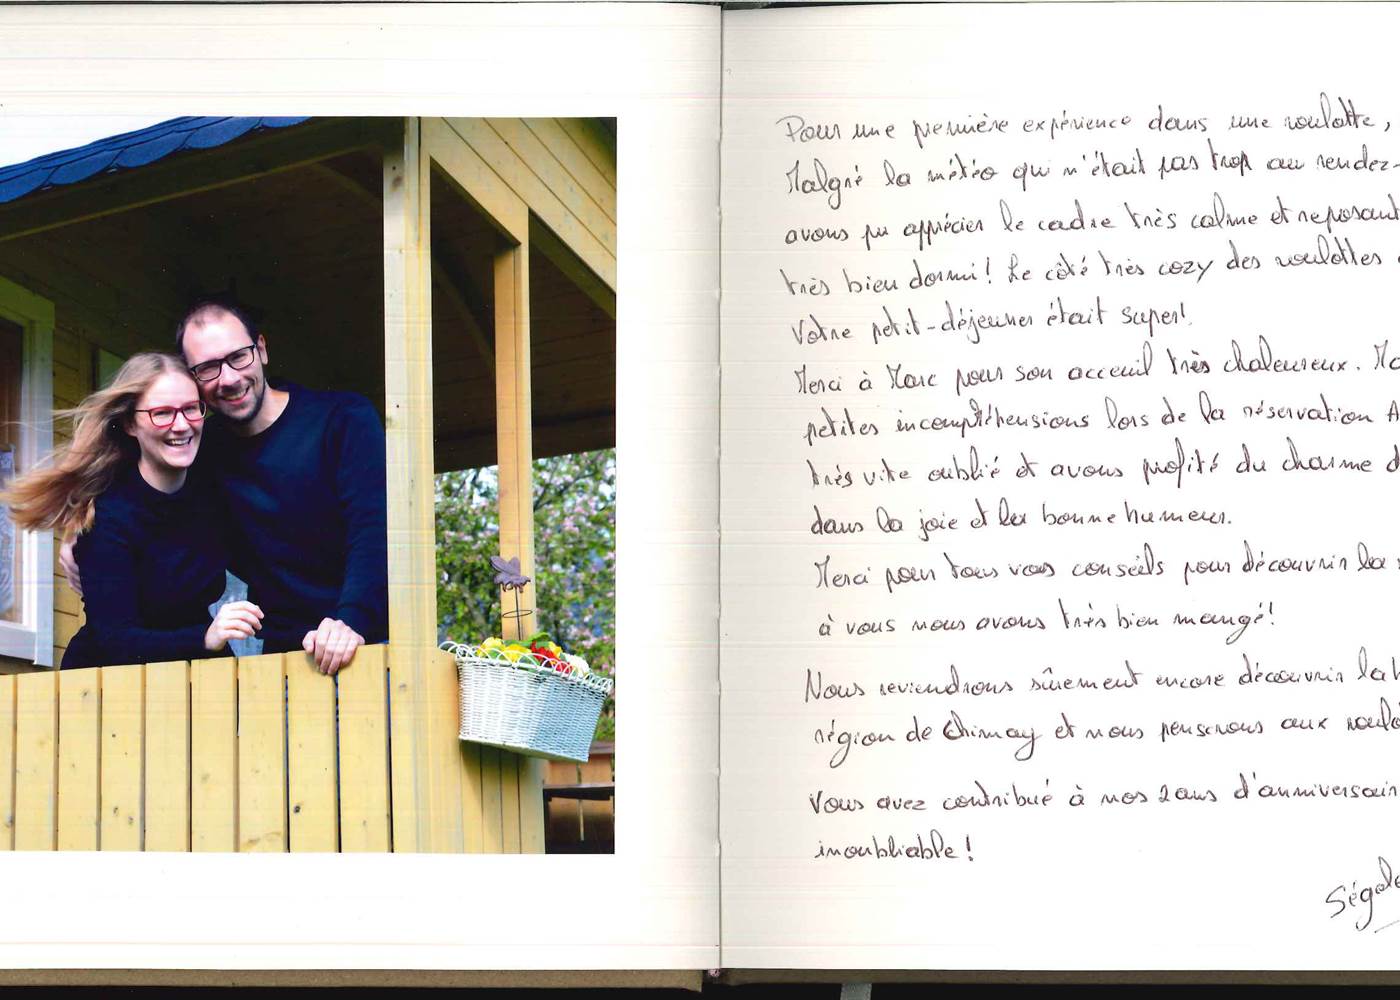 Pour une première expérience dans une roulotte,
Malgré la météo qui n'était pas trop au rendez-
avons pu apprécier le cadre très calme et reposant
très bien dormi! Le côté très cozy des roulottes
Votre petit-déjeuner était super!
Merci à Marc pour son acceuil très chaleureux.
petites incompréhensions lors de la réservation A
très vite oublié et avons profité du charme d
dans la joie et la bonne humeur.
Merci pour tous vos conseils pour découvrir la
à vous nous avons très bien mangé!
Nous reviendrons sûrement encore découvrir la
région de Chimay et nous penserons aux roulo
Vous avez contribué à nos 2 ans d'anniversair
inoubliable!
Ségole